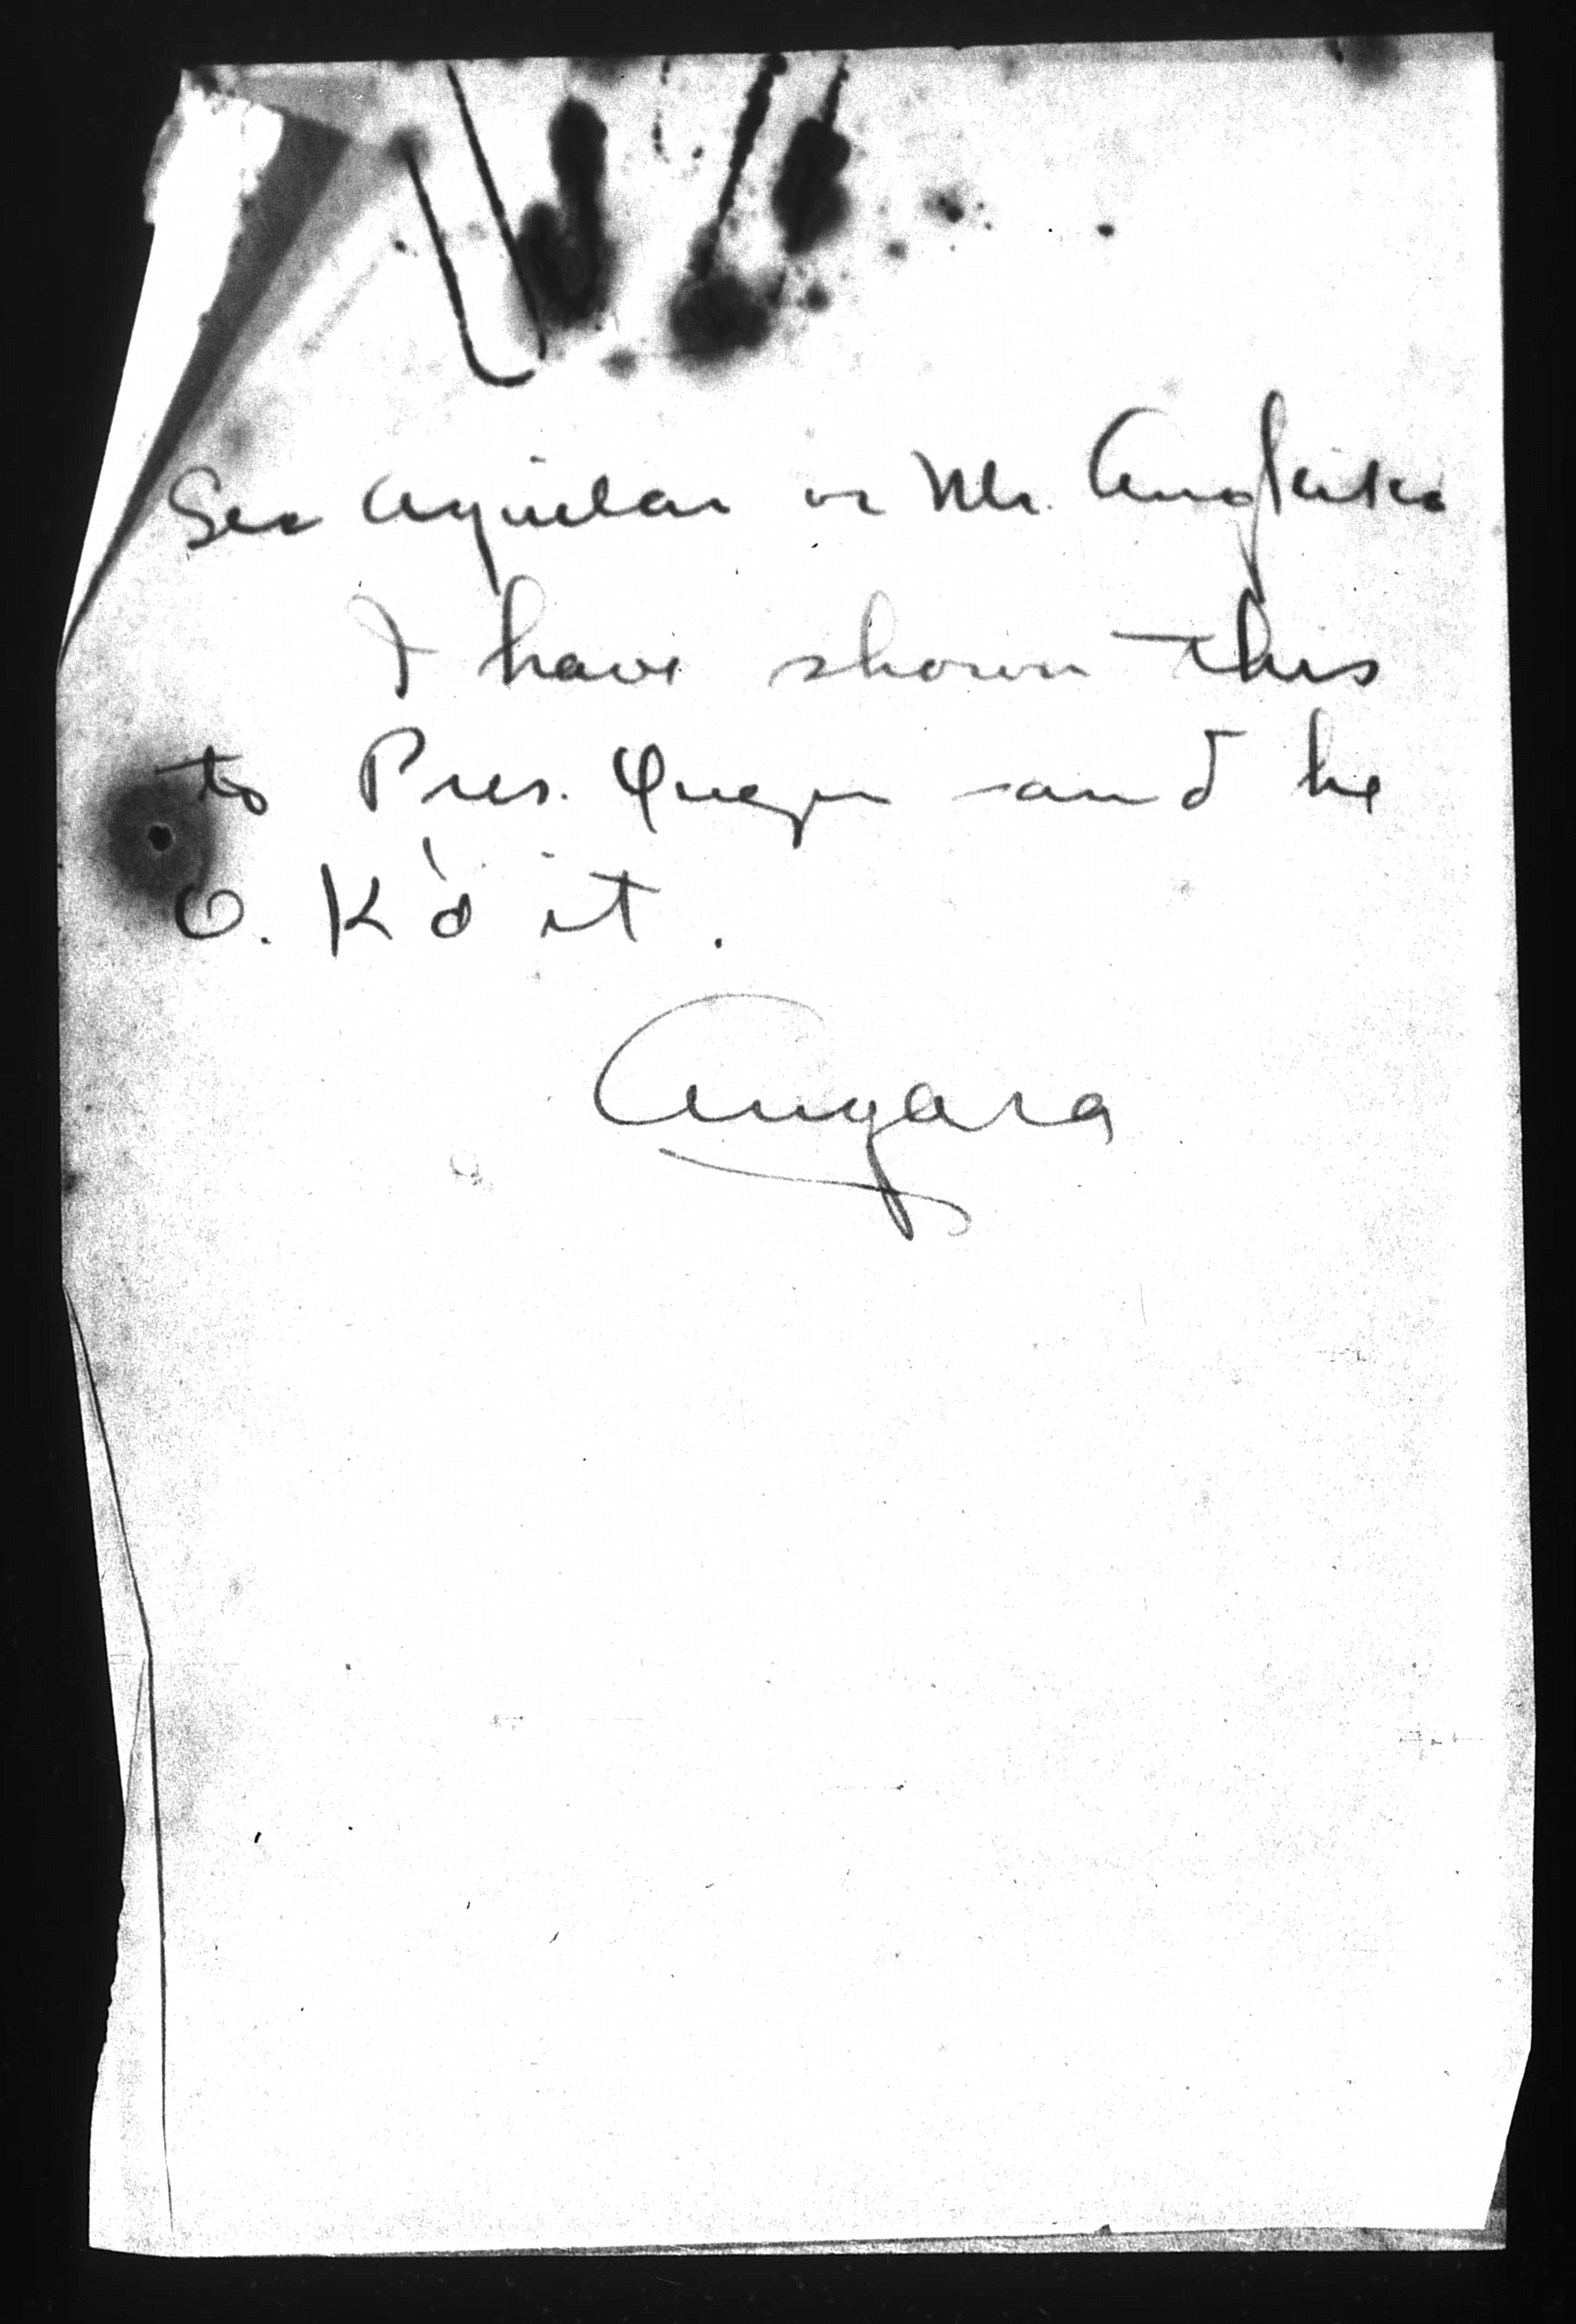 Sec Aguilar or Mr. Angleiko
I have shown this
to Pres. Quezon and he
O. K'd it.
Angara